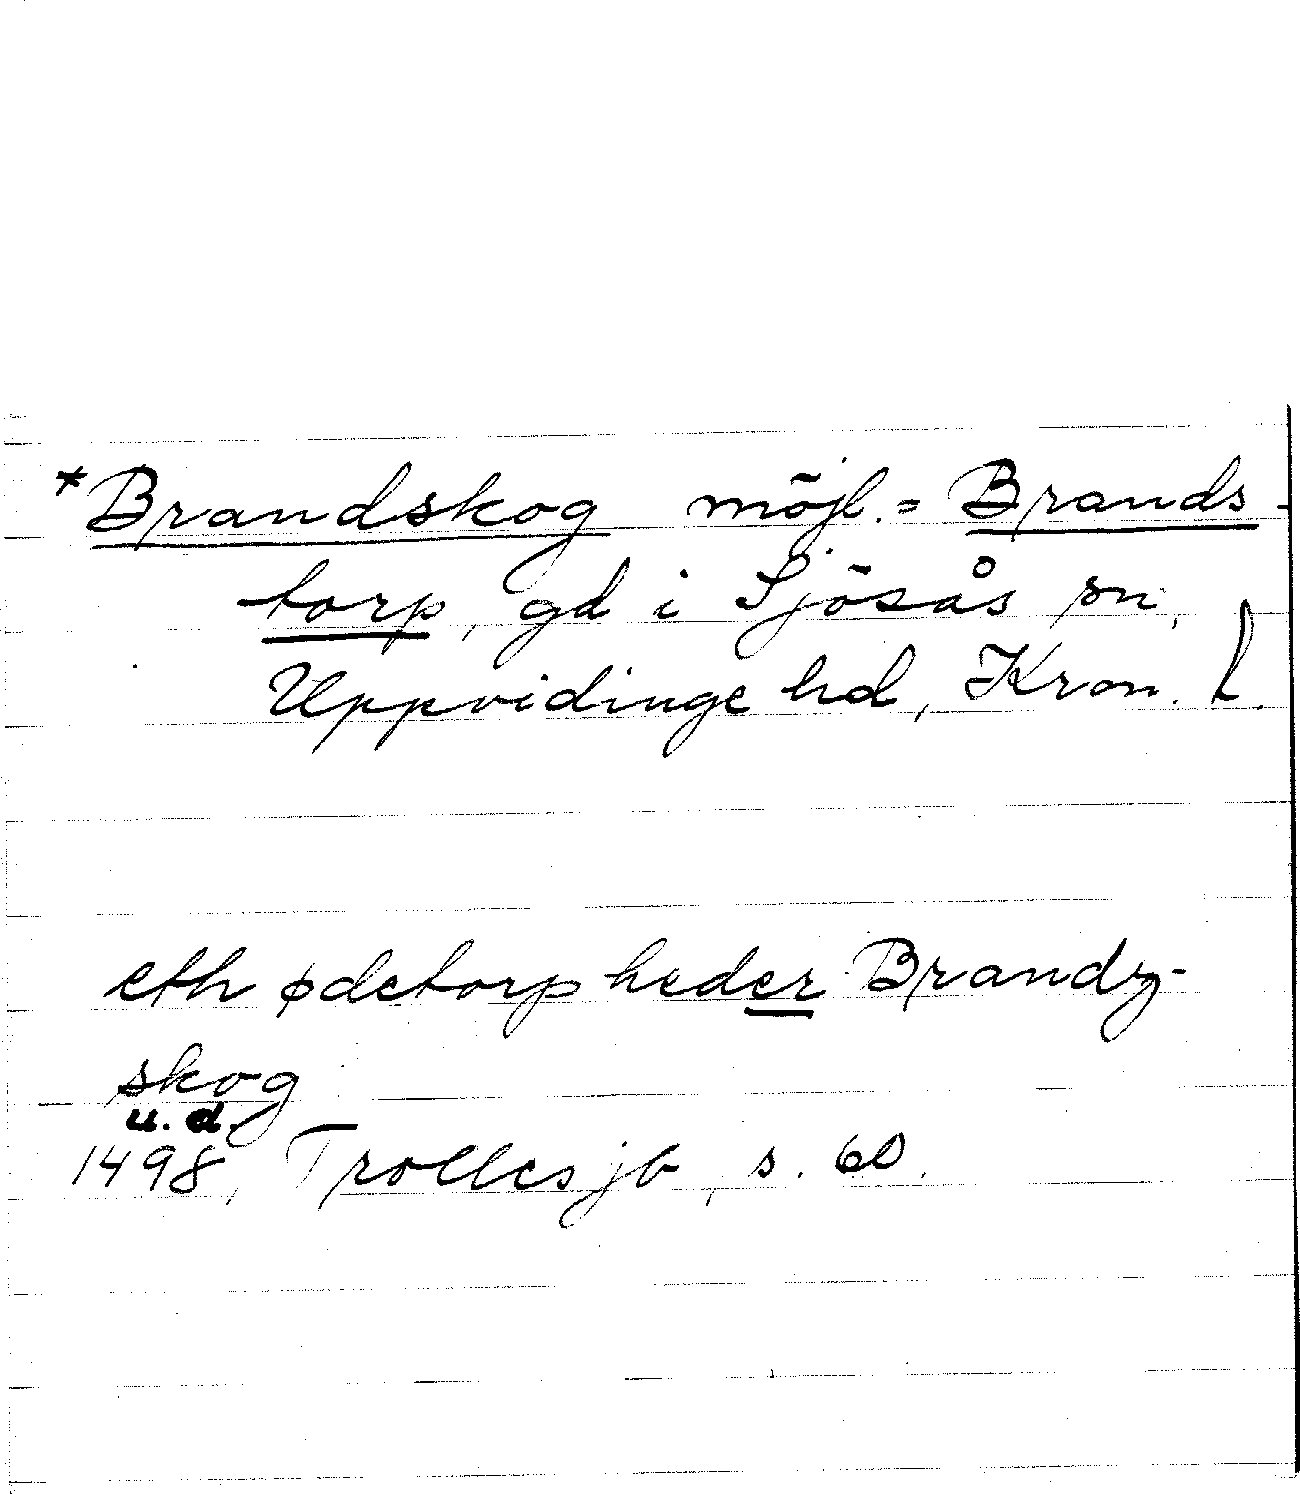 *Brandskog möjl. = Brands-
torp, gd i Sjösås sn,
Uppvidinge hd, Kron. l.
eth ødetorp heder Brandz-
skog
u. d.
1498, Trolles jb, s. 60.